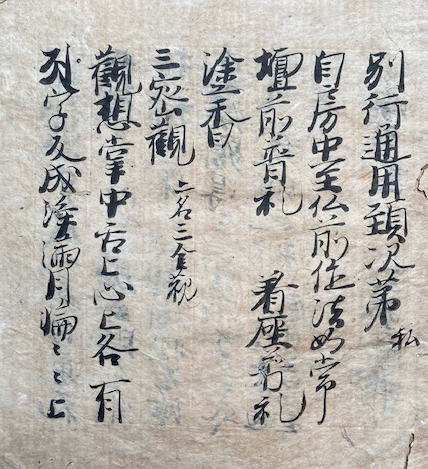 別行通用頚次第 私
自房中至仏前作法如常
壇前普礼 着座普礼
塗香
三密觀 名三金観
觀想掌中舌上心上各有
字反成淨満月輪〻上